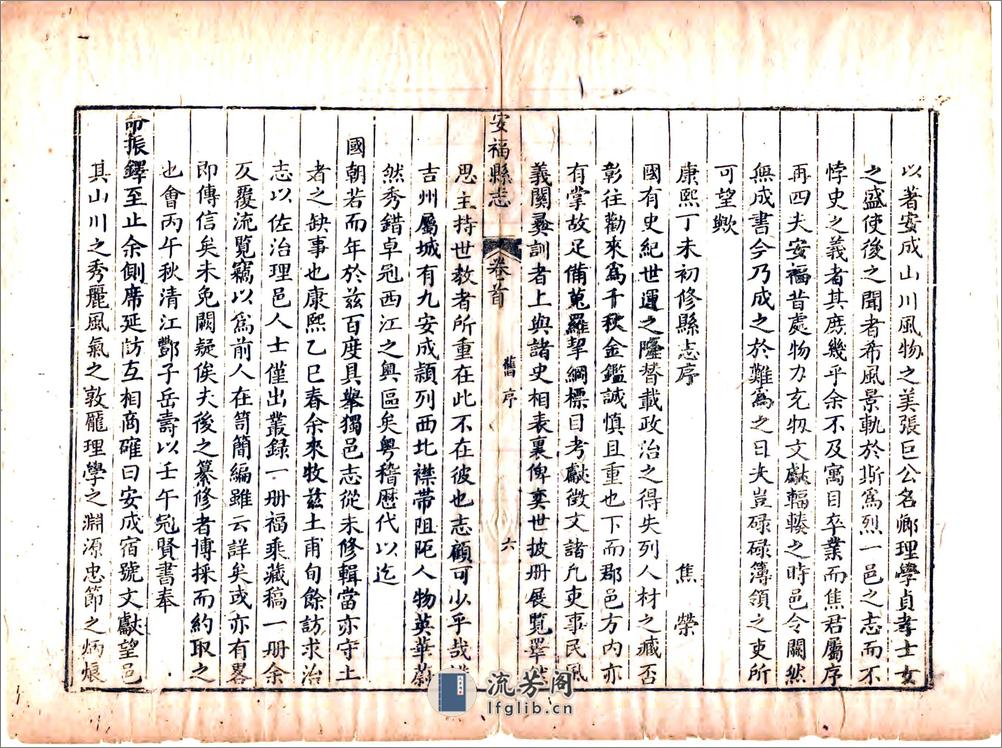 以著安成山川風物之美張巨公名卿理學貞孝士女
之盛使後之聞者希風景軌於斯爲烈一邑之志而不
悖史之義者其庶幾乎余不及寓目卒業而焦君屬序
再四夫安福昔處物力充牣文獻輻輳之時邑令闕然
無成書今乃成之於難爲之日夫豈碌碌簿領之吏所
可望歟
康熙丁未初修縣志序 焦榮
國有史紀世運之隆替載政治之得失列人材之臧否
彰往勸來爲千秋金鑑誠慎且重也下而郡邑方內亦
有掌故足備蒐羅挈綱標目考獻徵文諸凡吏事民風
義關彝訓者上與諸史相表裏俾奕世披册展覽
安福縣志
卷首
舊序
六
思主持世教者所重在此不在彼也志顧可少乎哉
吉州屬城有九安成頴列西北襟帶阻阨人物英華蔚
然秀錯卓冠西江之輿區矣粤稽歷代以迄
國朝若而年於兹百度具舉獨邑志從未修輯當亦守土
者之缺事也康熙乙巳春余來牧兹土甫旬餘訪求治
志以佐治理邑人士僅出叢録一册福乘藏稿一册余
反覆流覽竊以爲前人在笥簡編雖云詳矣或亦有畧
即傳信矣未免闕疑俟夫後之纂修者博採而約取之
也會丙午秋清江酆子岳壽以壬午冠賢書奉
命振鐸至止余側席延訪互相商確曰安成宿號文獻望邑
其山川之秀麗風氣之敦龎理學之淵源忠節之炳烺
流芳阁
lfglib.cn